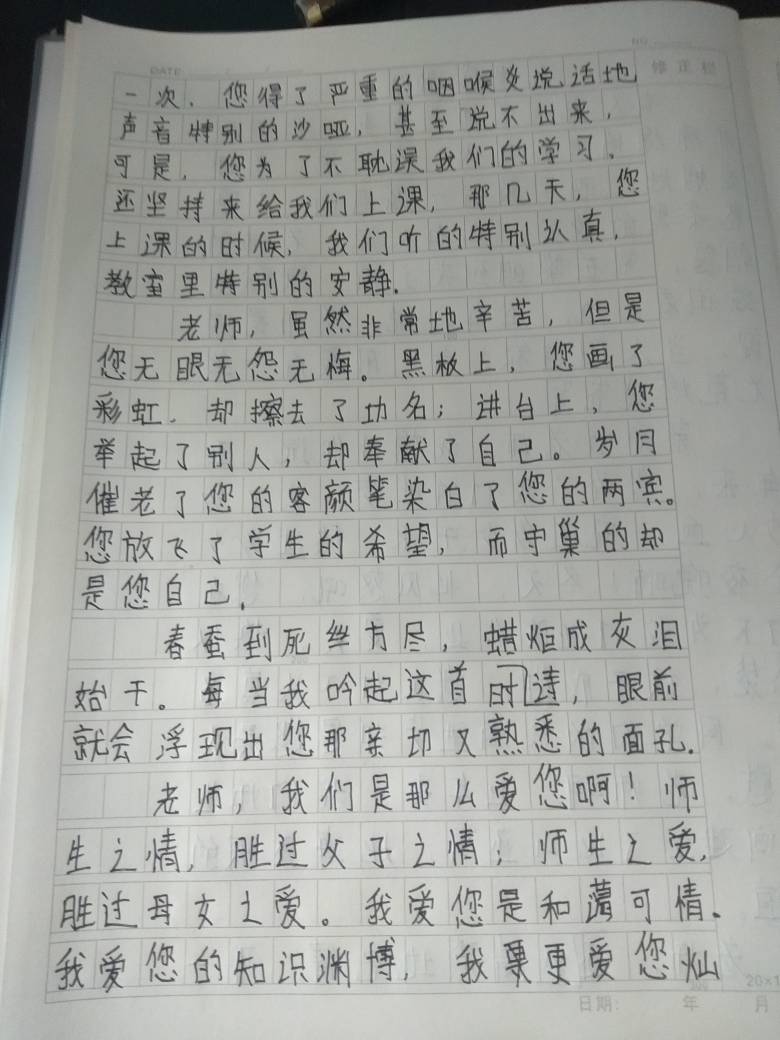 NO.
DATE
修正栏
一次，您得了严重的咽喉炎说话地
声音特别的沙哑，甚至说不出来，
可是，您为了不耽误我们的学习，
还坚持来给我们上课，那几天，您
上课的时候，我们听的特别认真，
教室里特别的安静.
老师，虽然非常地辛苦，但是
您无眼无怨无悔。黑板上，您画了
彩虹，却擦去了功名；讲台上，您
举起了别人，却奉献了自己。岁月
催老了您的容颜笔染白了您的两宾。
您放飞了学生的希望，而守巢的却
是您自己.
春蚕到死丝方尽，蜡炬成灰泪
始干。每当我吟起这首时诗，眼前
就会浮现出您那亲切又熟悉的面孔.
老师，我们是那么爱您啊！师
生之情，胜过父子之情；师生之爱,
胜过母女之爱。我爱您是和蔼可情.
我爱您的知识渊博，我更爱您灿
20×1
日期： 年 月